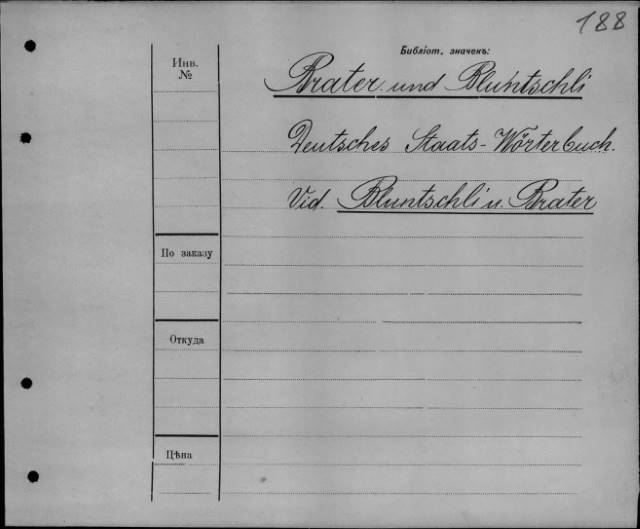 188
Библіот. значекъ:
Инв.
№
Brater und Bluntschli
Deutsches Staats-Wörterbuch.
Vid. Bluntschli u. Brater
По заказу
Откуда
Цѣна